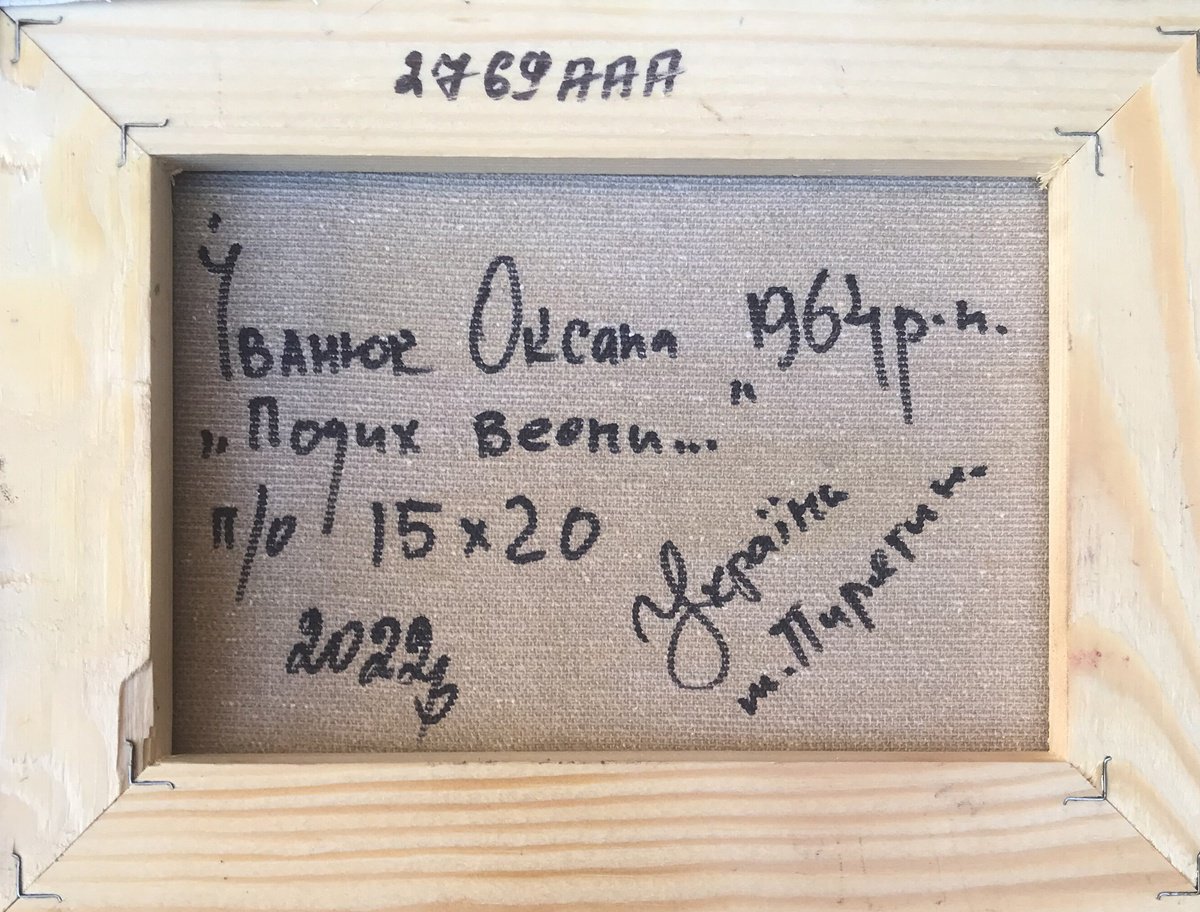 2769AAA
Іванюк Оксана 1964р.н.
„Подих весни..."
п/о 15x20
Україна
м. Пирятин.
2022р